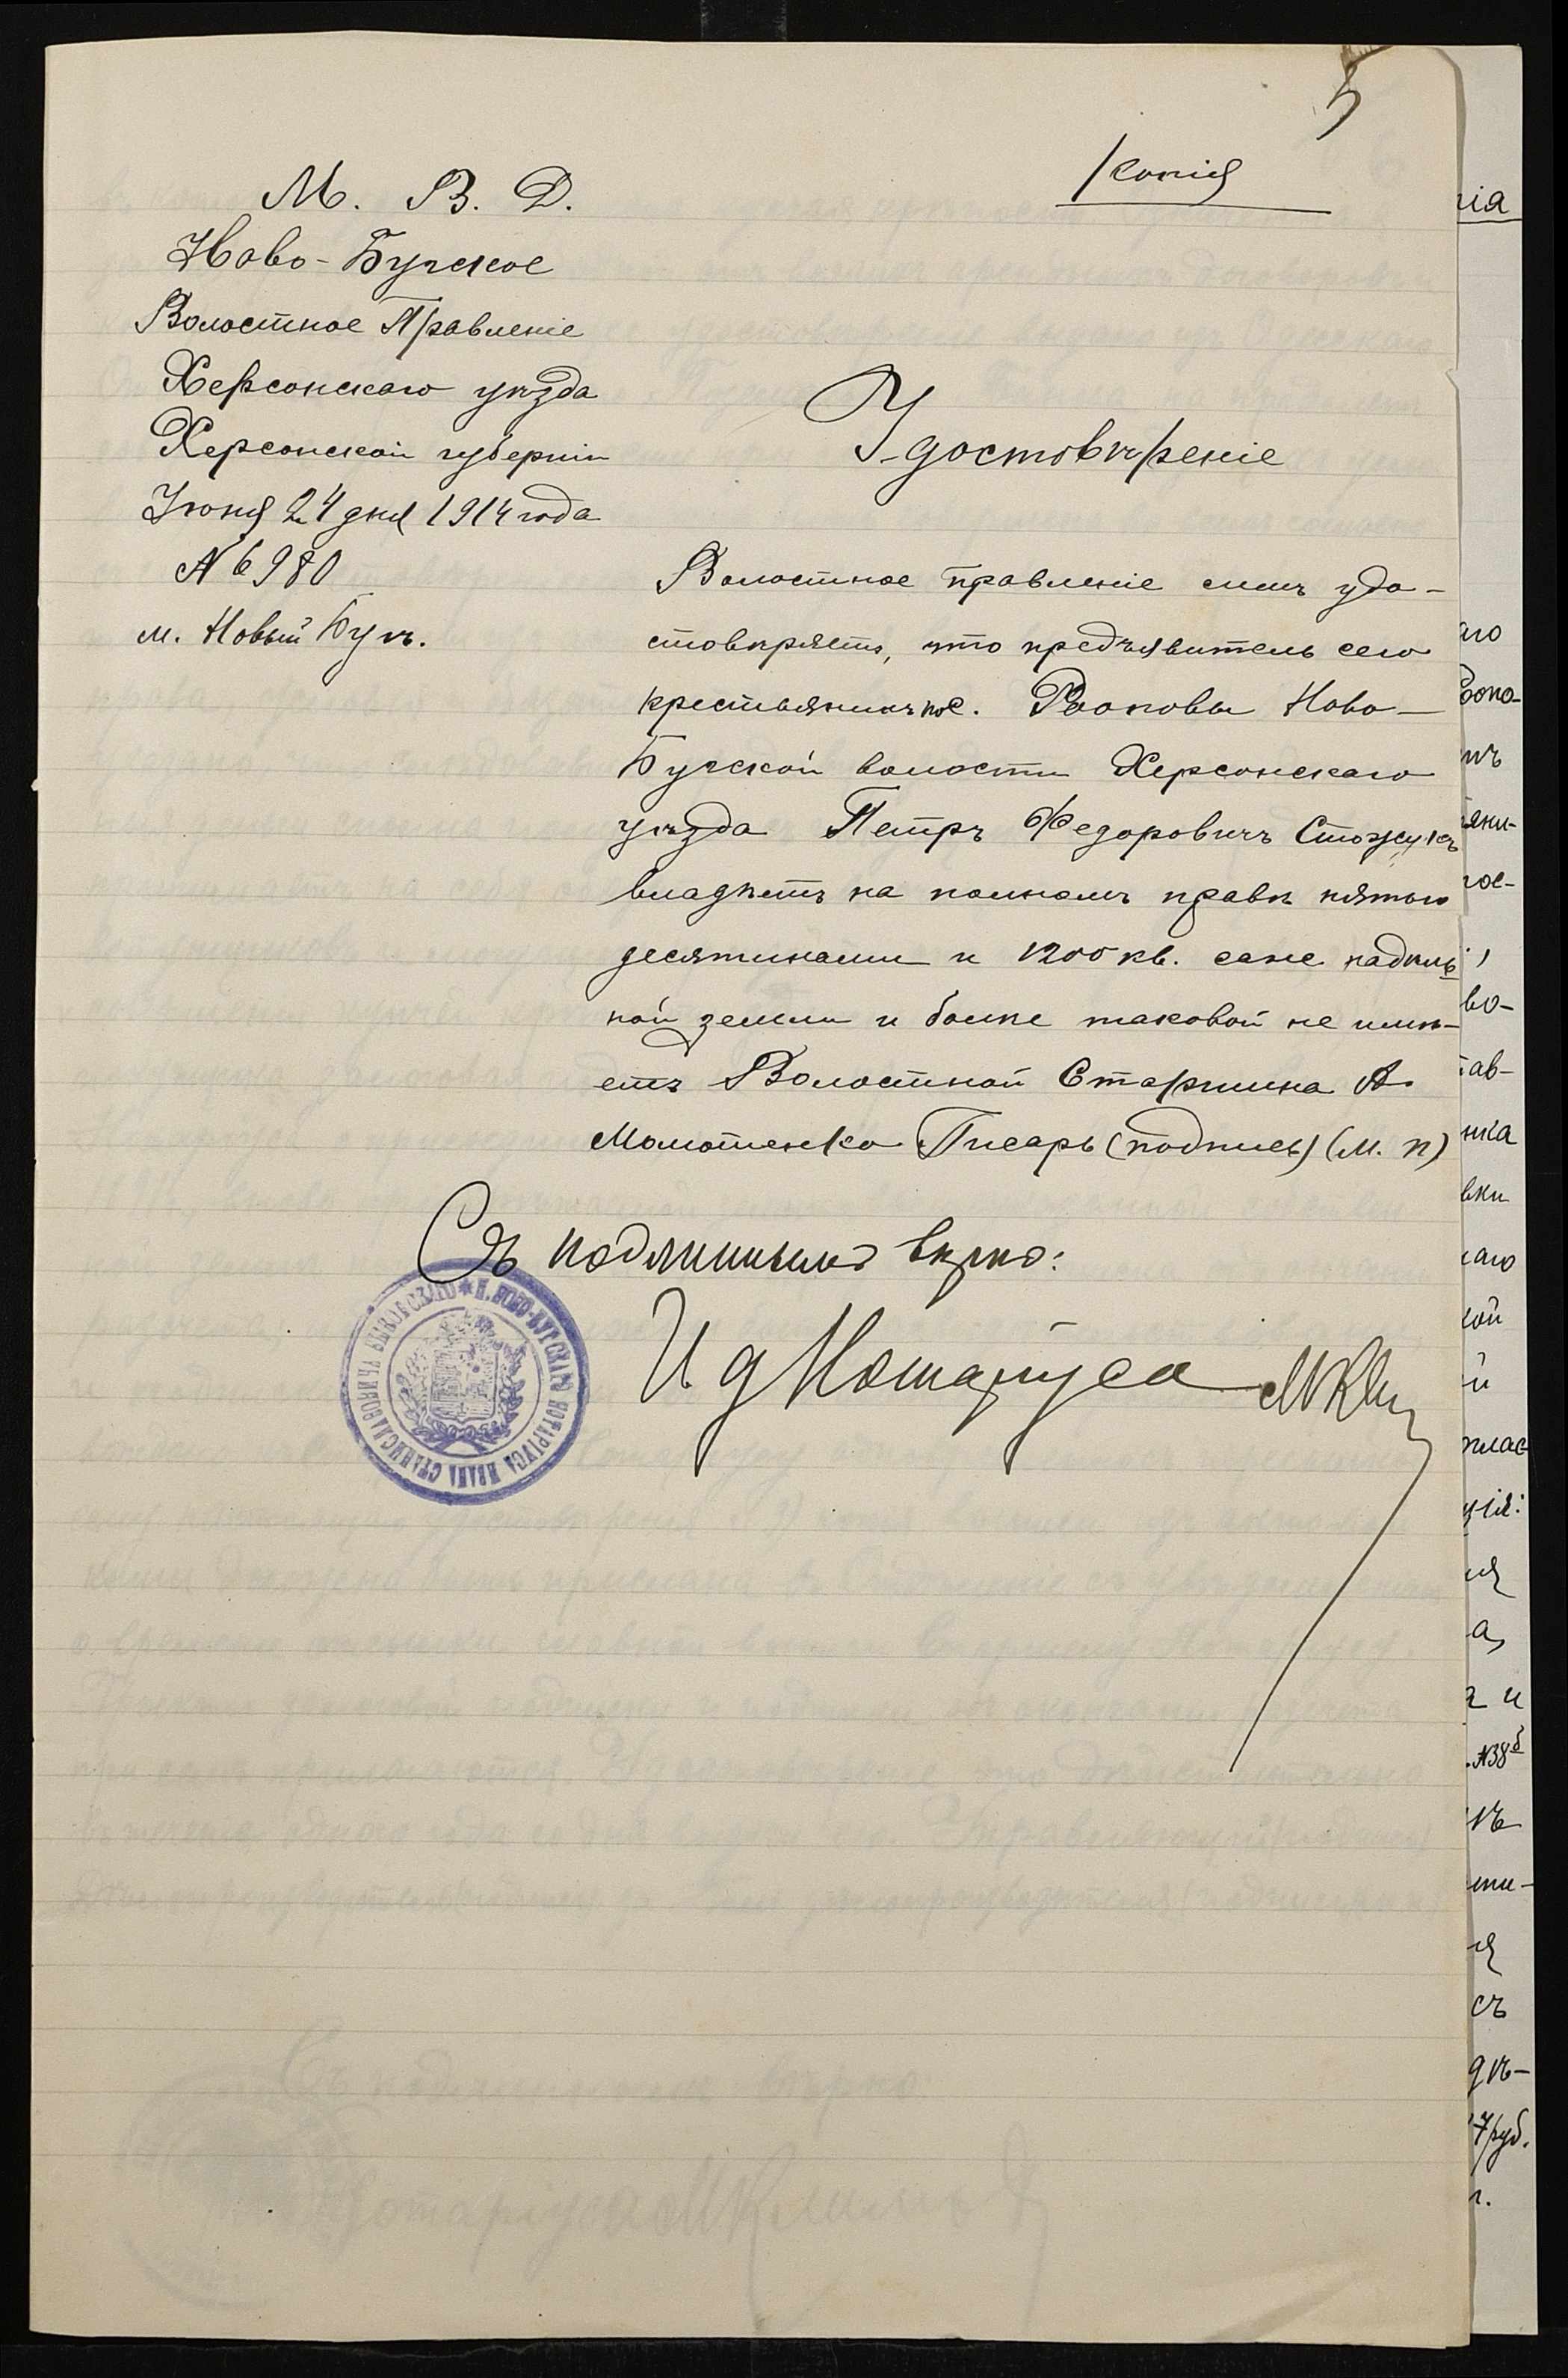 5
Копія
М. В. Д.
Ново-Бугское
Волостное Правленіе
Херсонскаго уѣзда
Херсонской губерніи
Іюня 24 дня 1914 года
№ 6980
м. Новый Бугъ.
Удостовѣреніе
Волостное правленіе симъ удо-
стовѣряетъ, что предъявитель сего
крестьянинъ пос. Ново-
Бугской волости Херсонскаго
уѣзда Петръ Федоровичъ Стожукъ
владѣетъ на полномъ правѣ пятью
десятинами и 1200 кв. саж. надѣль
ной земли и болѣе таковой не имѣ-
етъ Волостной Старшина А.
Молотенко Писарь (подпись) (М. п)
Съ подлиннымъ вѣрно:
И д Нотаріуса
* Н. НОВО-БУГСКАГО НОТАРІУСА ИВАНА СТАНИСЛАВОВИЧА